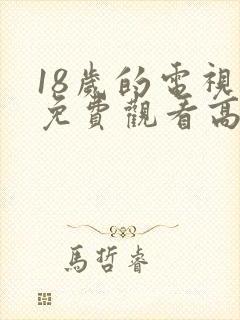 18歲的電視
免費觀看高
馬哲睿